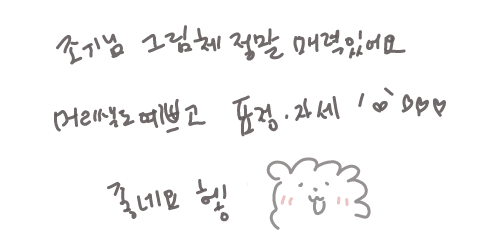 조기님 그림체 정말 매력있어요
머리색도 예쁘고 표정.자세 'ㅇ`♡♡♡
죽네요 헿